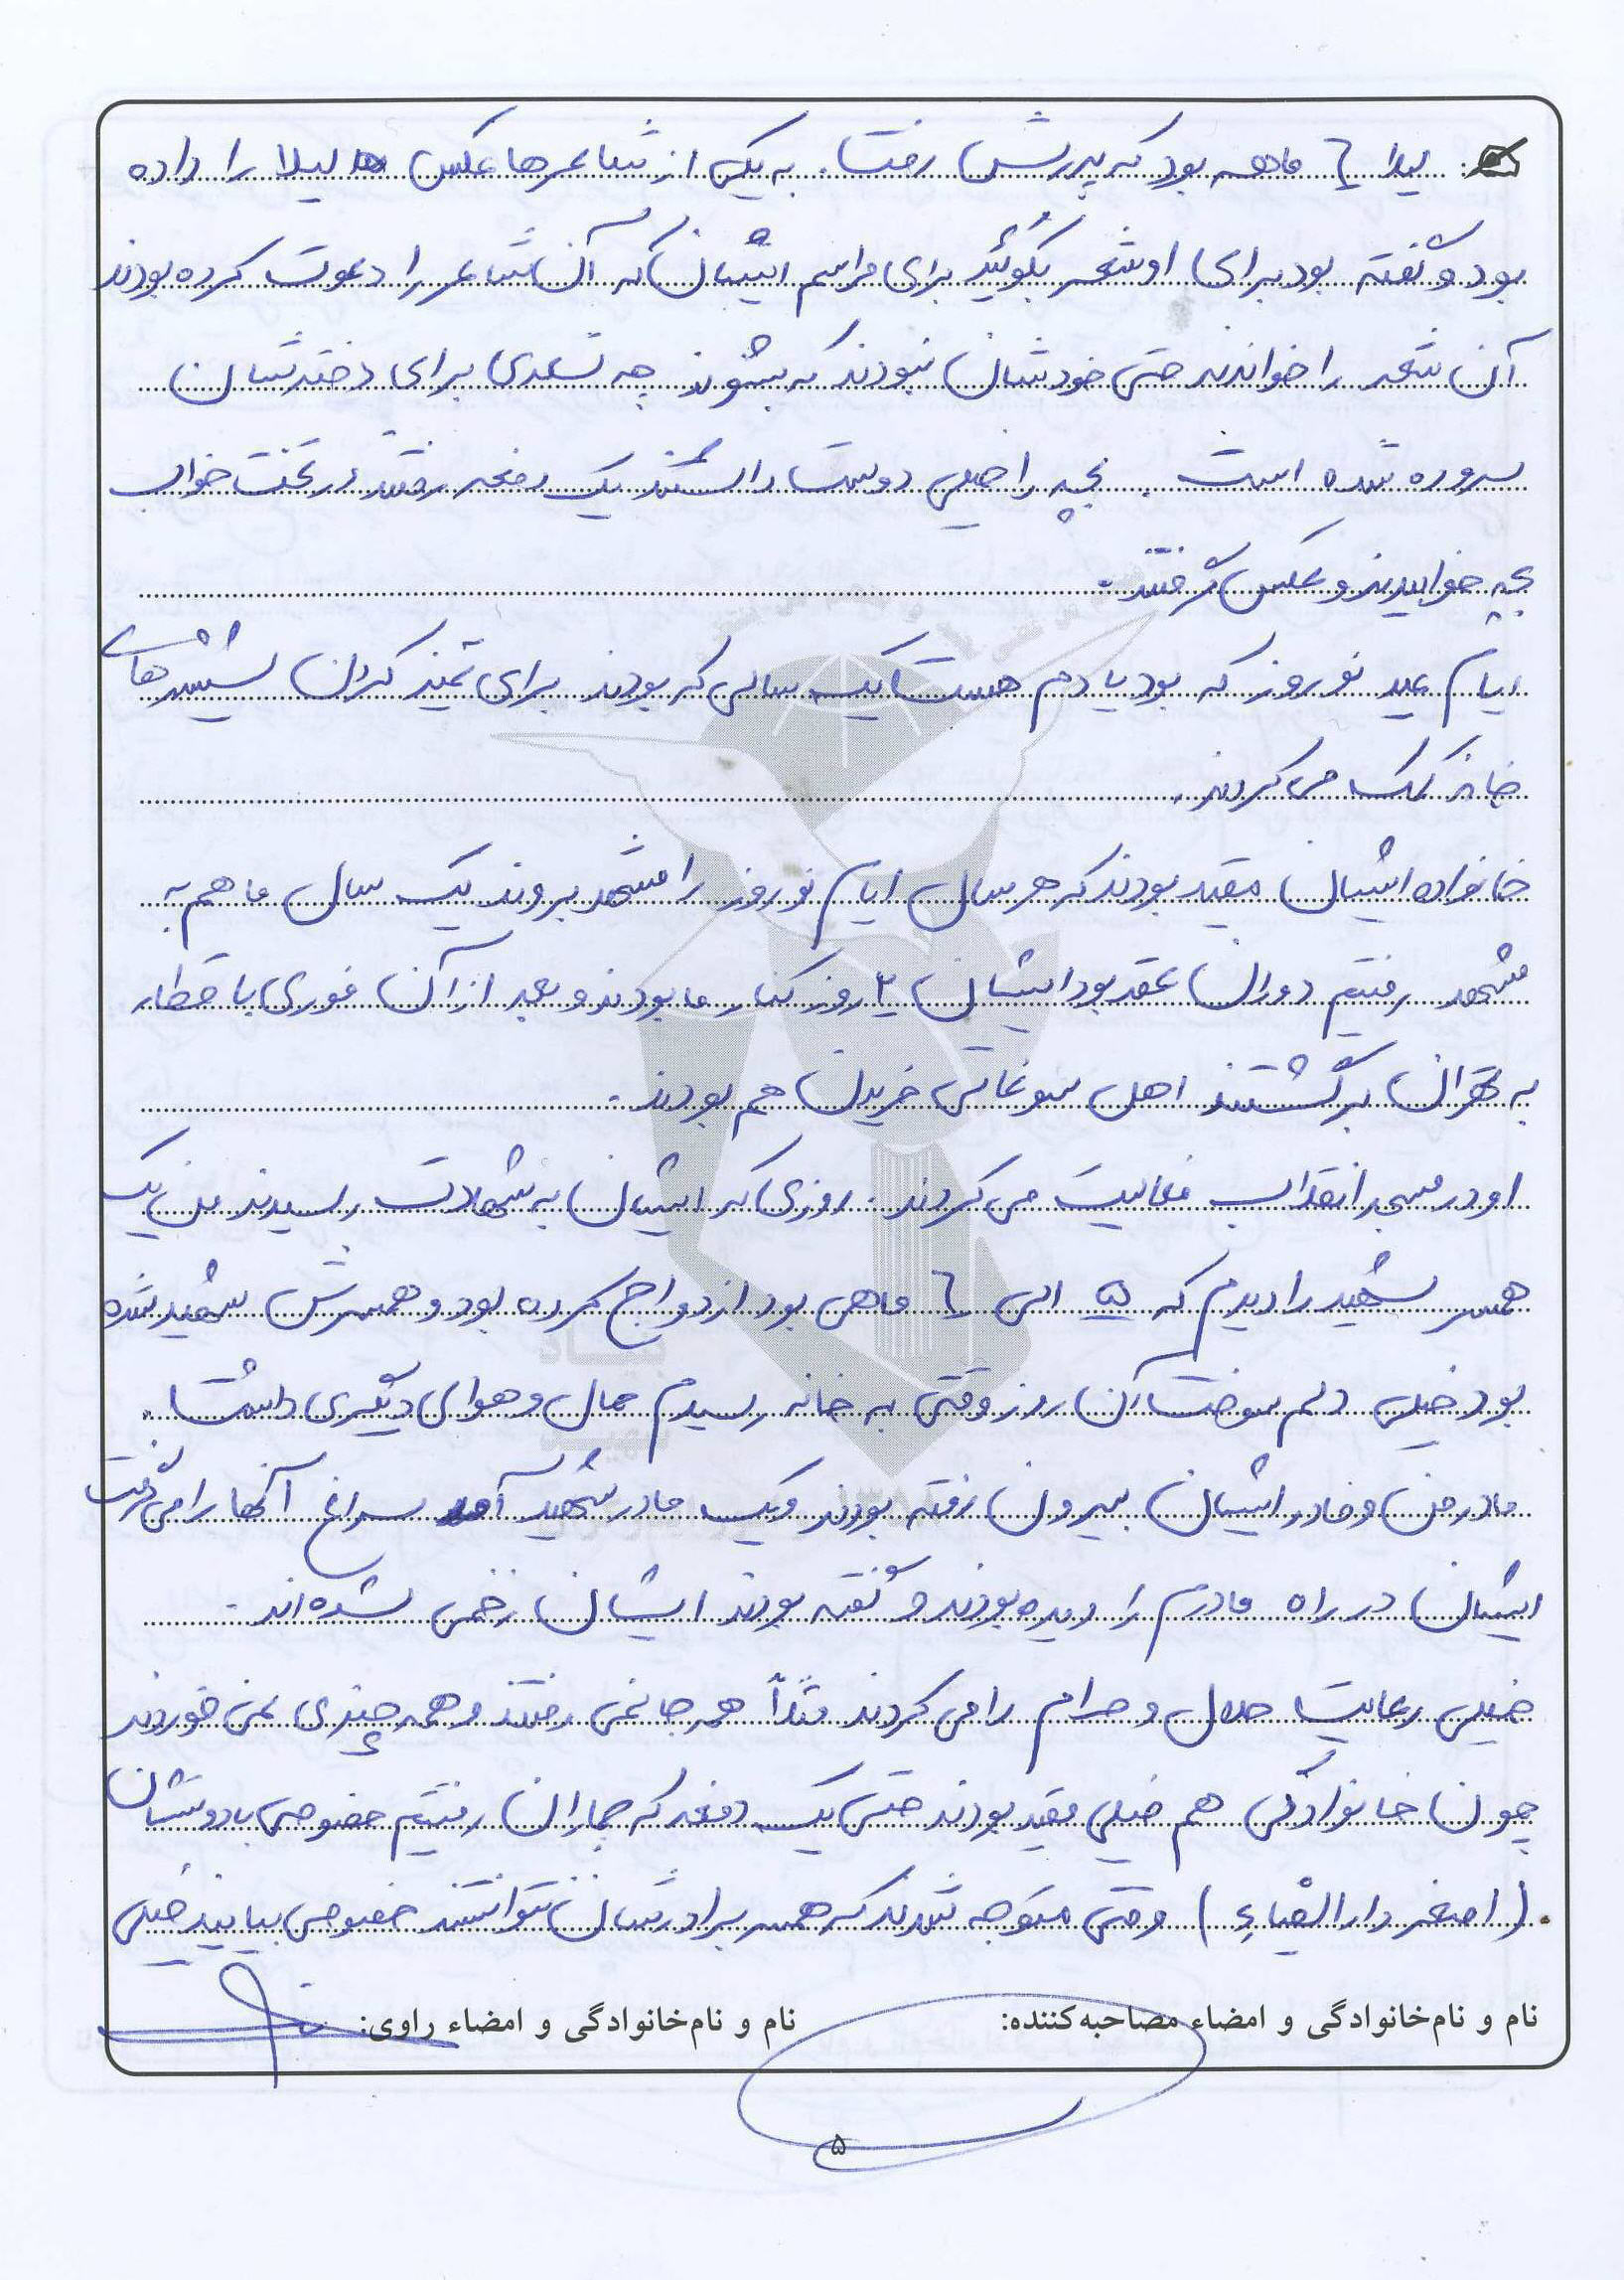 لیلا ٦ ماهه بود که پدرش رفت. به یکی از شاعرها عکس لیلا را داده
بود و گفته بود برای او شعر بگوئید برای مراسم ایشان که آن شاعر را دعوت کرده بودند
آن شعر را خواندند حتی خودشان نبودند که بشنوند چه شعری برای دخترشان
سروده شده است. بچه را خیلی دوست داشتند یک دفعه رفتند در تخت خواب
بچه خوابیدند و عکس گرفتند.
ایام عید نوروز که بود یادم هست یک سالی که بودند برای تمیز کردن شیشه‌های
خانه کمک می کردند.
خانواده ایشان مقید بودند که هر سال ایام نوروز را مشهد بروند یک سال ما هم به
مشهد رفتیم دوران عقد بود ایشان ۲ روز کنار ما بودند و بعد از آن فوری با قطار
به تهران برگشتند اهل سوغاتی خریدن هم بودند.
او در مسجد انقلاب فعالیت می کردند. روزی که ایشان به شهادت رسیدند من یک
همسر شهید را دیدم که ۵ الی ٦ ماهی بود ازدواج کرده بود و همسرش شهید شده
بود خیلی دلم سوخت آن روز وقتی به خانه رسیدم حال و هوای دیگری داشت.
مادر من و مادر ایشان بیرون رفته بودند و یک مادر شهید آمد سراغ آنها را می گرفت
ایشان در راه مادرم را دیده بودند و گفته بودند ایشان زخمی شده اند.
خیلی رعایت حلال و حرام را می کردند مثلاً همه جا نمی رفتند و همه چیزی نمی خوردند
چون خانوادگی هم خیلی مقید بودند حتی یک دفعه که جماران رفتیم خصوصی با دوستشان
(اصغر دار الضیاء) وقتی متوجه شدند که همسر برادرشان نتوانستند خصوصی بیایند خیلی
نام و نام‌خانوادگی و امضاء مصاحبه‌کننده: نام و نام‌خانوادگی و امضاء راوی:
۵